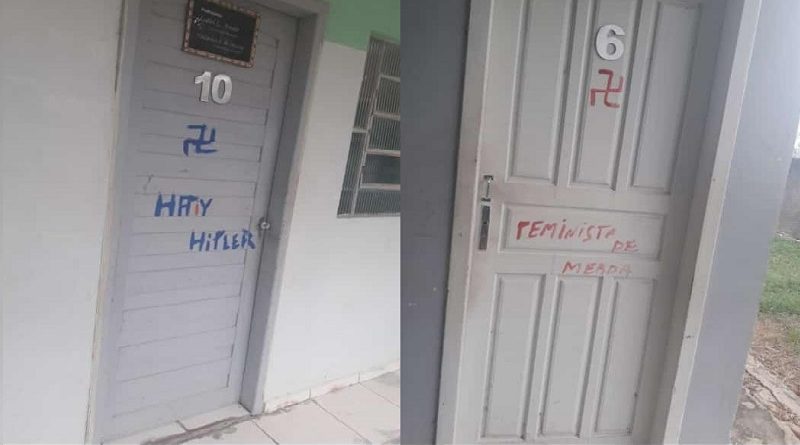 10
卐
HAIY
HITLER
6
卐
FEMINISTA
DE
MERDA